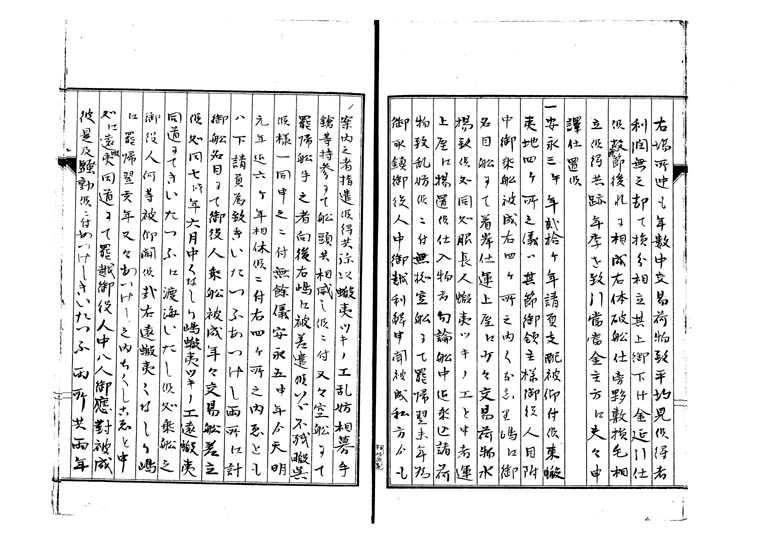 右場所迚も年数中交易荷物致平均見候得者
利潤無之却て損分相立其上御下ケ金延引仕
候故節後れニ相成右体破船仕旁夥敷損毛相
立候得共跡年季を致引當當金主方江夫々申
譯仕置候
一安永三午年弐拾ヶ年請負支配被仰付候東蝦
夷地四ヶ所之儀ハ其節御領主様御役人目附
中御乗船被成右四ヶ所之内くなしり嶋江御
名目船ニて着岸仕運上座江少々交易荷物水
揚致候処同処長人蝦夷ツキノエと申者運
上座江揚置候仕入物勿論船中迄乗込諸荷
物致乱妨候ニ付無拠空船ニて罷帰翌未年為
御取鎮御役人中御越利解申聞被成私方ゟも
案内之者指遣候得共弥以蝦夷ツキノエ乱妨相募手
鎗等持参ニて船頭共相威し候ニ付又々空船ニて
罷帰船手之者向後右嶋江被差遣候ハヽ不残
候様一同申之ニ付無餘儀安永五申年ゟ天明
元年迄六ヶ年相休候ニ付右四ヶ所之内ゑとも
八下請負為致きいたつふあつけし両所江計
御船名目ニて御役人乗船被成年々交易船差立
候処同七年六月中くなしり嶋蝦夷ツキノエ遠蝦夷
同道ニてきいたつふ江渡海いたし候処乗船之
御役人何等被仰聞候哉右遠蝦夷くなしり嶋
江罷帰翌亥年又々あつけし之内ちくしこゐと申
処江遠夷同道ニて罷越御役人中八人御應對被成
彼是及騒動候ニ付あつけしきいたつふ両所共両年